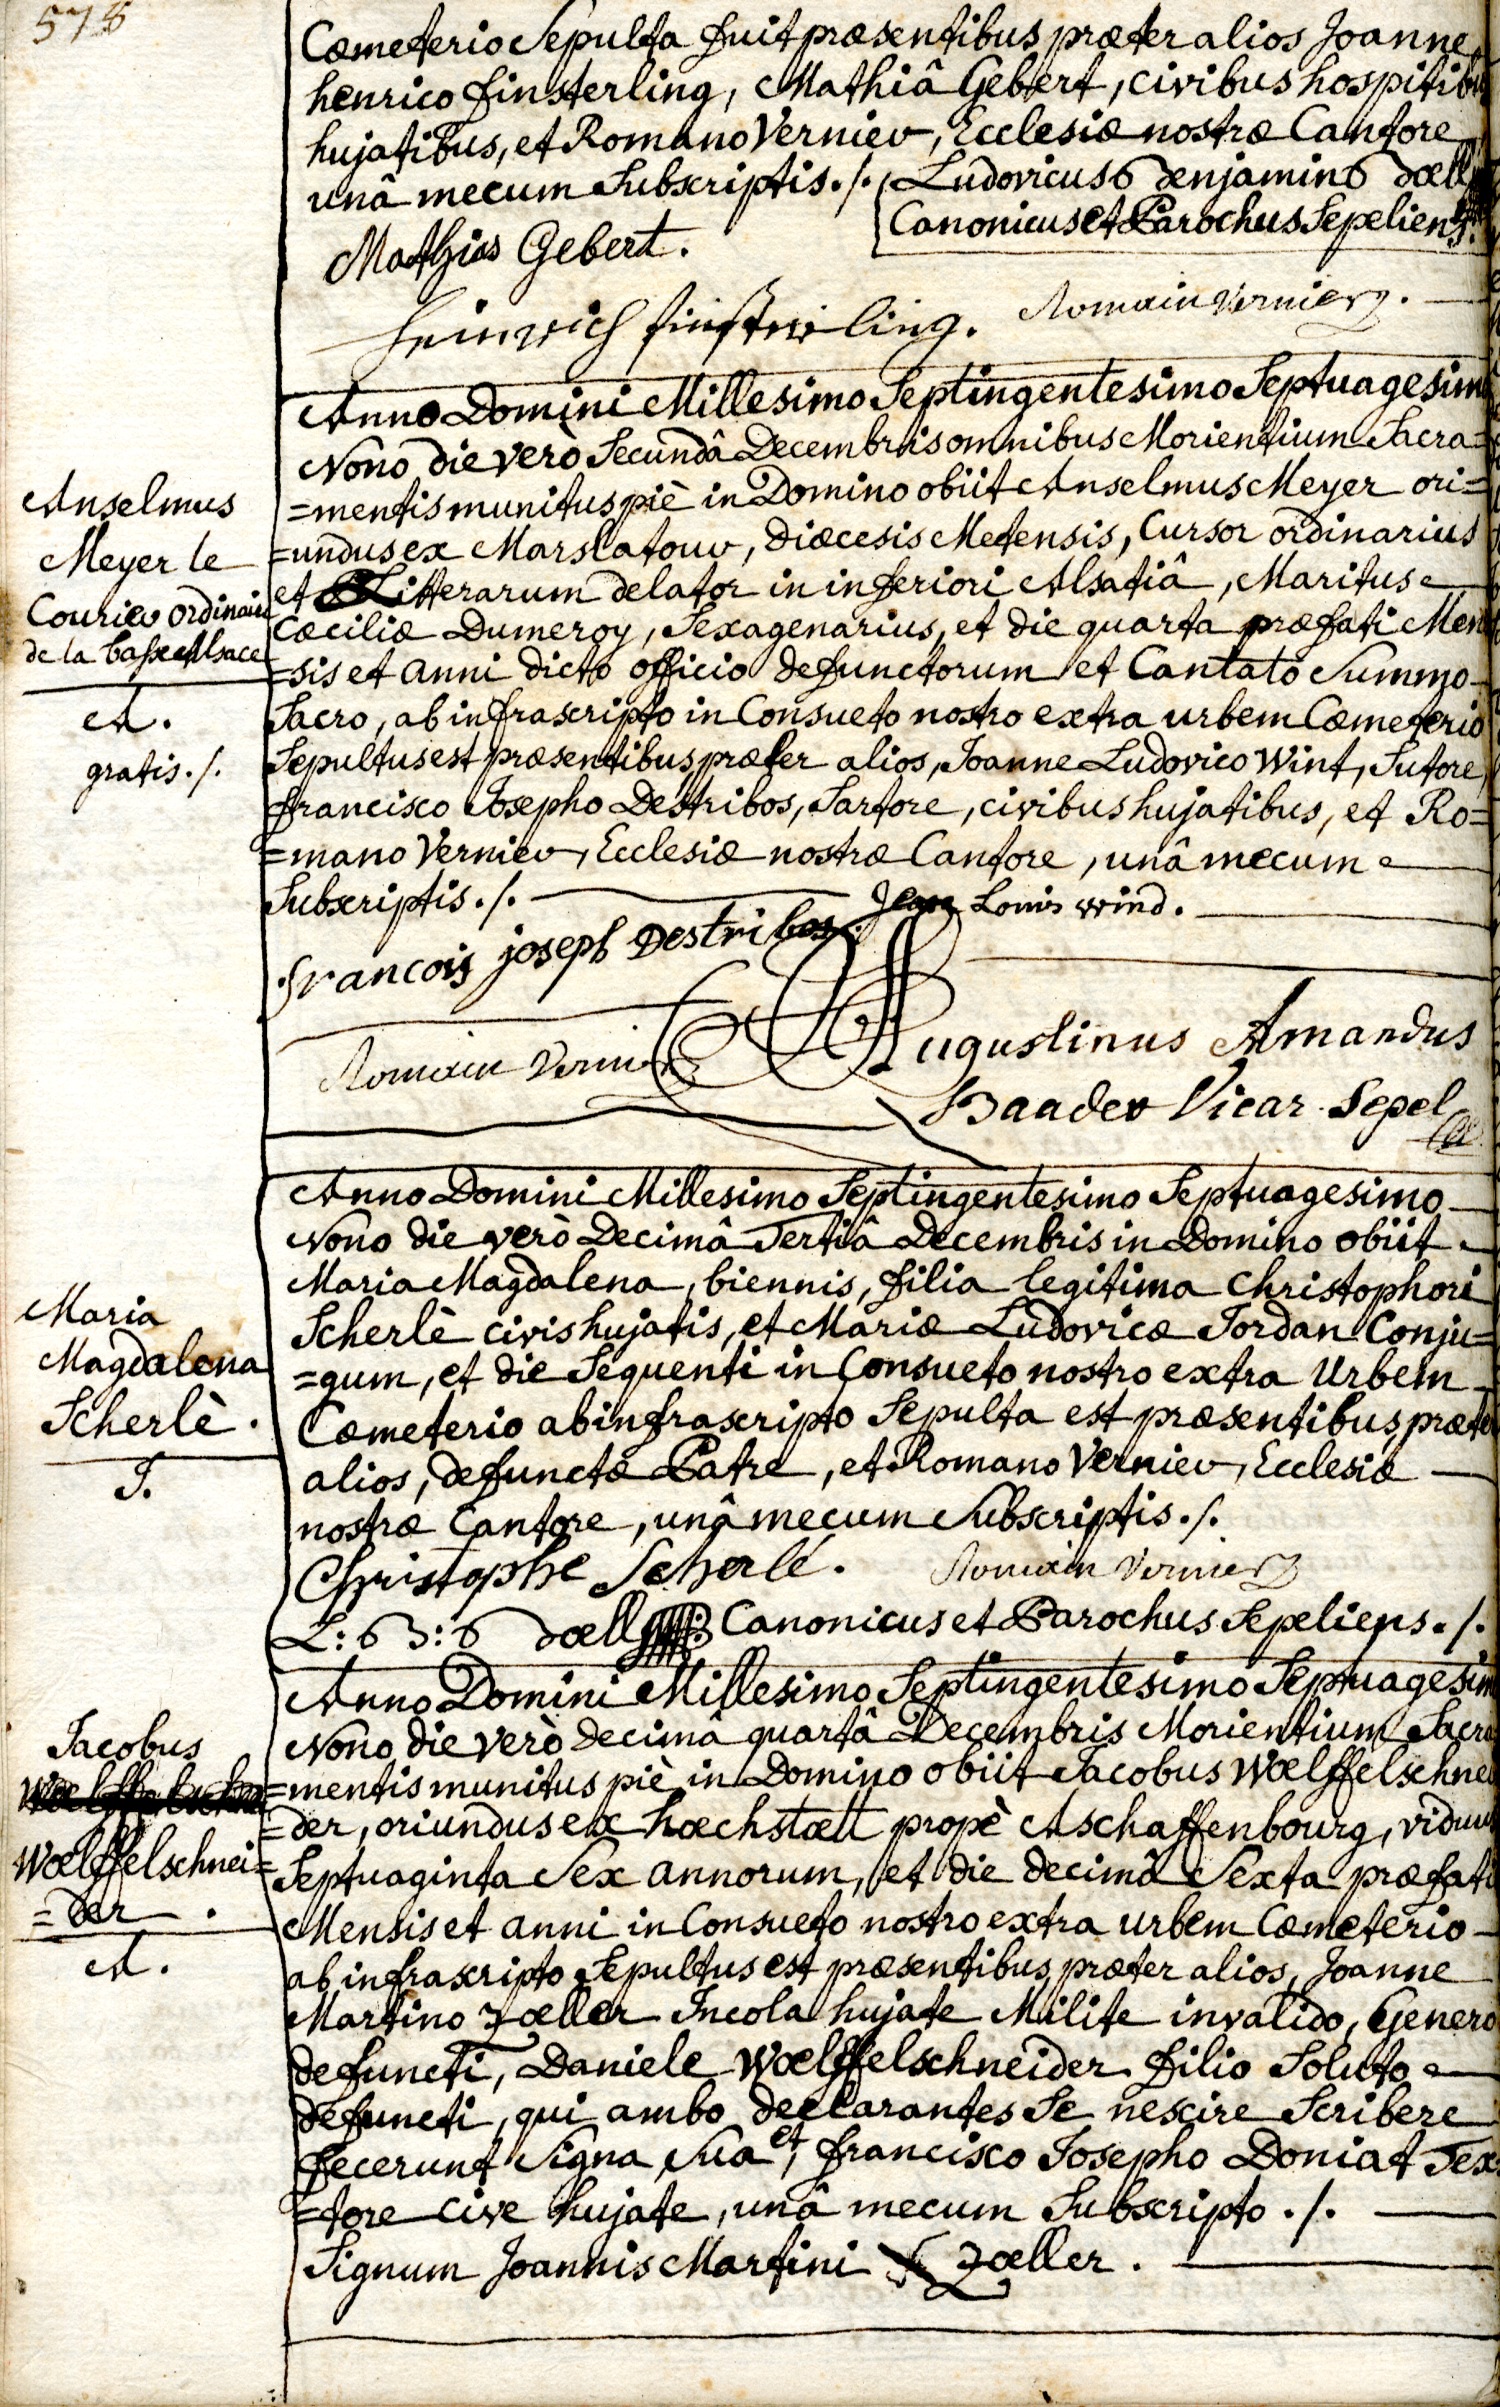 578
Cæmeterio Sepulta fuit præsentibus præter alios Joanne
henrico finsterling, Mathiâ Gebert, civibus hospitibus
hujatibus, et Romano Vernier, Ecclesiæ nostræ Cantore
unâ mecum Subscriptis ./. Ludovicus Benjamin Doell
Canonicus et Parochus Sepeliens.
Mathias Gebert.
Heinrich finsterling. Romain Vernier.
Anno Domini Millesimo Septingentesimo Septuagesimo
Nono die verò Secundâ Decembris omnibus Morientium Sacra=
=mentis munitus piè in Domino obiit Anselmus Meyer ori=
=undus ex Marslatour, Diœcesis Metensis, Cursor ordinarius
et Litterarum delator in inferiori Alsatiâ, Maritus
Cæciliæ Dumeroy, Sexagenarius, et die quarta præfati Men
=sis et anni dicto officio defunctorum et Cantato Summo
Sacro, ab infrascripto in Consueto nostro extra urbem Cæmeterio
Sepultus est præsentibus præter alios, Joanne Ludovico Wint, Sutore,
francisco Josepho Destribos, Sartore, civibus hujatibus, et Ro=
=mano Vernier, Ecclesiæ nostræ Cantore, unâ mecum
Subscriptis ./. Jean Louis wind.
francois joseph Destribos.
Romain Vernier Augustinus Amandus
Baader Vicar. Sepel
Anselmus
Meyer le
Courier ordinaire
de la basse Alsace
A.
gratis ./.
Anno Domini Millesimo Septingentesimo Septuagesimo
Nono die verò Decimâ Tertiâ Decembris in Domino obiit
Maria Magdalena, biennis, filia legitima Christophori
Scherlè civis hujatis, et Mariæ Ludovicæ Jordan Conju=
=gum, et die Sequenti in Consueto nostro extra Urbem
Cæmeterio ab infrascripto Sepulta est præsentibus, præter
alios, defunctæ Patre, et Romano Vernier, Ecclesiæ
nostræ Cantore, unâ mecum Subscriptis ./.
Christophe Scherlé. Romain Vernier
L: B: Doell Canonicus et Parochus Sepeliens ./.
Maria
Magdalena
Scherlè.
J.
Anno Domini Millesimo Septingentesimo Septuagesimo
Nono die verò decimâ quartâ Decembris Morientium Sacra
=mentis munitus piè in Domino obiit Jacobus Wœlffelschnei
=der, oriundus ex hœchstætt propè Aschaffenbourg, viduus
Septuaginta Sex annorum, et die decimâ Sexta præfati
Mensis et anni in Consueto nostro extra urbem Cæmeterio
ab infrascripto Sepultus est præsentibus, præter alios, Joanne
Martino Zœller Incola hujate Milite invalido, Genero
defuncti, Daniele Wœlffelschneider filio Soluto
defuncti, qui ambo declarantes Se nescire Scribere
fecerunt Signa Sua, et francisco Josepho Doniat Tex=
=tore cive hujate, unâ mecum Subscripto ./.
Signum Joannis Martini Zœller.
Jacobus
Wœlffelschnei=
=der.
A.